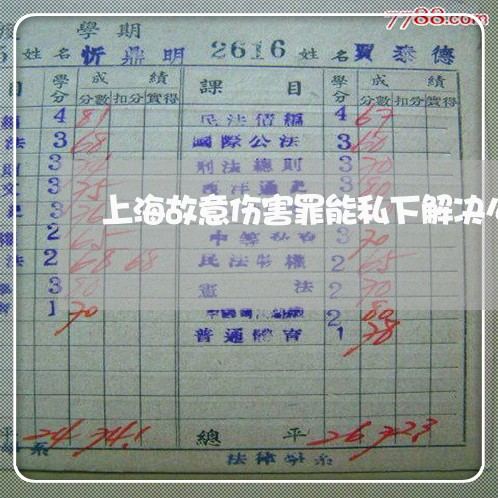 7788.com
學期
姓名 忻鼎明 2616 姓名 賈泰德
目 學分 成績 課目 學分 成績
分數 扣分 實得 分數 扣分 實得
4 81 民法債編 4 67
法 3 68 國際公法 3 60
3 刑法總則 3 70
3 75 西洋通史 3 80
上海故意伤害罪能私下解决
2 65 3 70
法 2 68 68 民法物權 2 65
3 80 憲法 2 70
1 70 2 80
普通體育 1 78
平 24 74.1 總平 26 72.3
系 法律學系